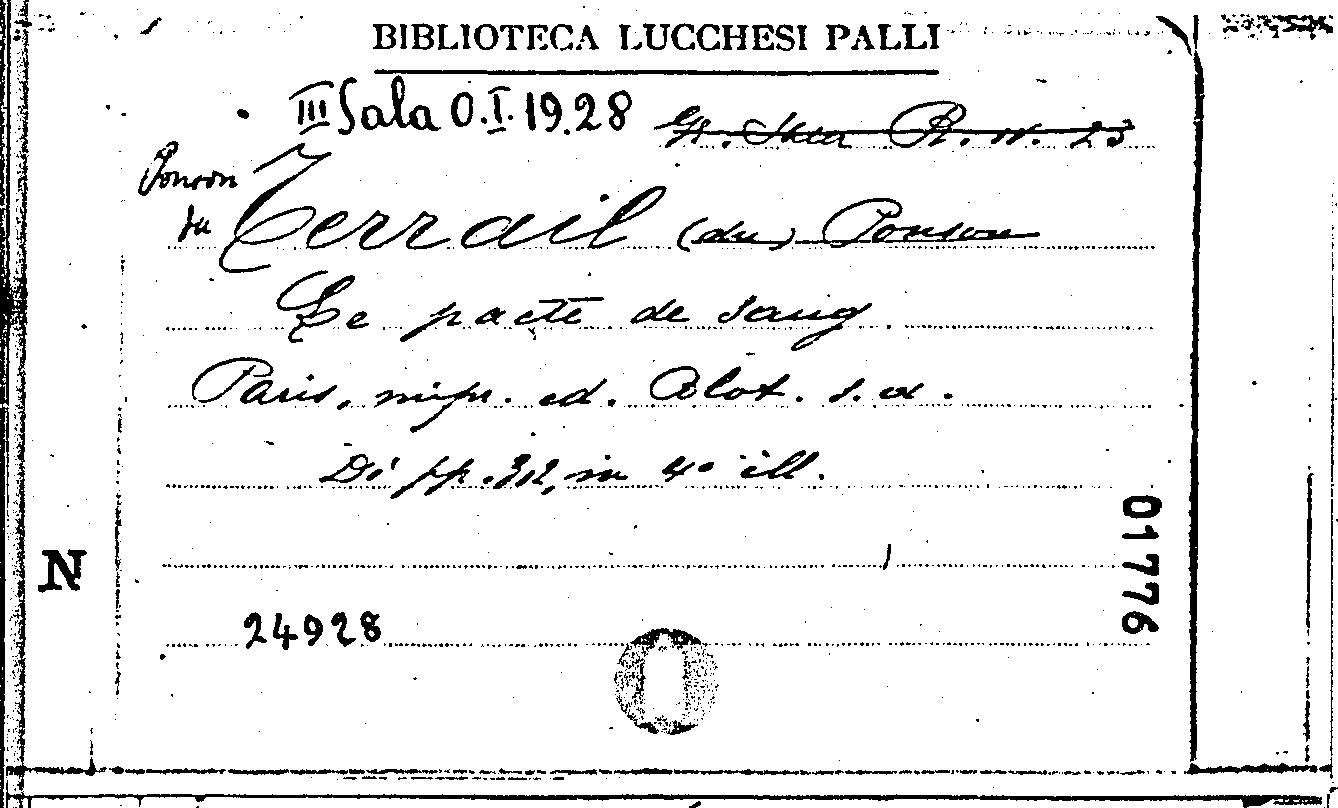 BIBLIOTECA LUCCHESI PALLI
III Sala O.I.19.28 R. N. 23
Ponson du Terrail (du) Ponson
Le pacte de sang
Paris, impr. ed. Blot. s. d.
Di pp. 312, in 4° ill.
01776
N
24928